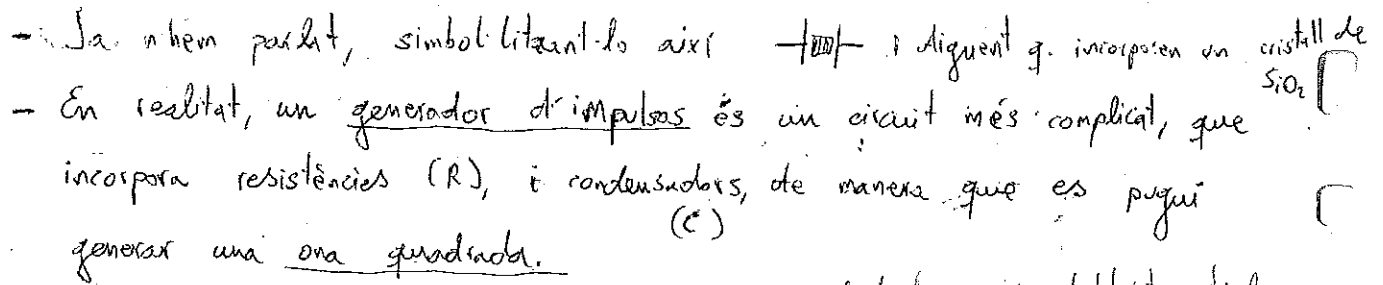 - Ja n'hem parlat, simbol·litzant-lo així i diguent q. incorporen un cristall de SiO₂
- En realitat, un generador d'impulsos és un circuit més complicat, que
incorpora resistències (R), i condensadors, de manera que es pugui
(C)
generar una ona quadrada.